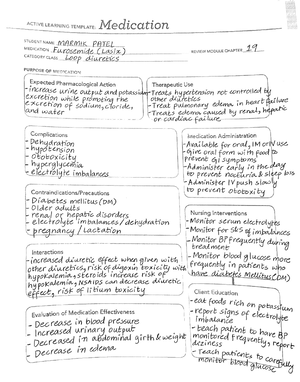 ACTIVE LEARNING TEMPLATE: Medication
STUDENT NAME MARMIK PATEL
MEDICATION Furosemide (Lasix) REVIEW MODULE CHAPTER 19
CATEGORY CLASS Loop diuretics
PURPOSE OF MEDICATION
Expected Pharmacological Action
-increase urine output and potassium
excretion while promoting the
excretion of sodium, cloride,
and water
Therapeutic Use
-Treats hypertension not controlled by
other diuretics
-Treat pulmonary edema in heart failure
-Treats edema caused by renal, hepatic
or cardiac failure
Complications
- Dehydration
- hypotension
- Ototoxicity
- hyperglycemia
- electrolyte imbalances
Medication Administration
-Available for oral, IM or IV use
-Give oral form with food to
prevent GI symptoms
-Administer early in the day
to prevent nocturia & sleep loss
-Administer IV push slowly
to prevent ototoxity
Contraindications/Precautions
- Diabetes mellitus (DM)
- Older adults
- renal or hepatic disorders
- electrolyte imbalances/dehydration
- pregnancy / Lactation
Nursing Interventions
-Monitor serum electrolytes
-Monitor for S&S of imbalances
-Monitor BP frequently during
treatment
-Monitor blood glucose more
frequently in patients who
have diabetes Mellitus (DM)
Interactions
-increased diuretic effect when given with
other diuretics, risk of digoxin toxicity with
hypokalemia, steroids increase risk of
hypokalemia, NSAIDS can decrease diuretic
effect, risk of litium toxicity
Client Education
-eat foods rich on potassium
-report signs of electrolyte
imbalance
-teach patient to have BP
monitored frequently, report
deziness
- Teach patients to carefully
monitor blood glucose
Evaluation of Medication Effectiveness
- Decrease in blood pressure
- Increased urinary output
- Decreased in abdominal girth & weight
- Decrease in edema